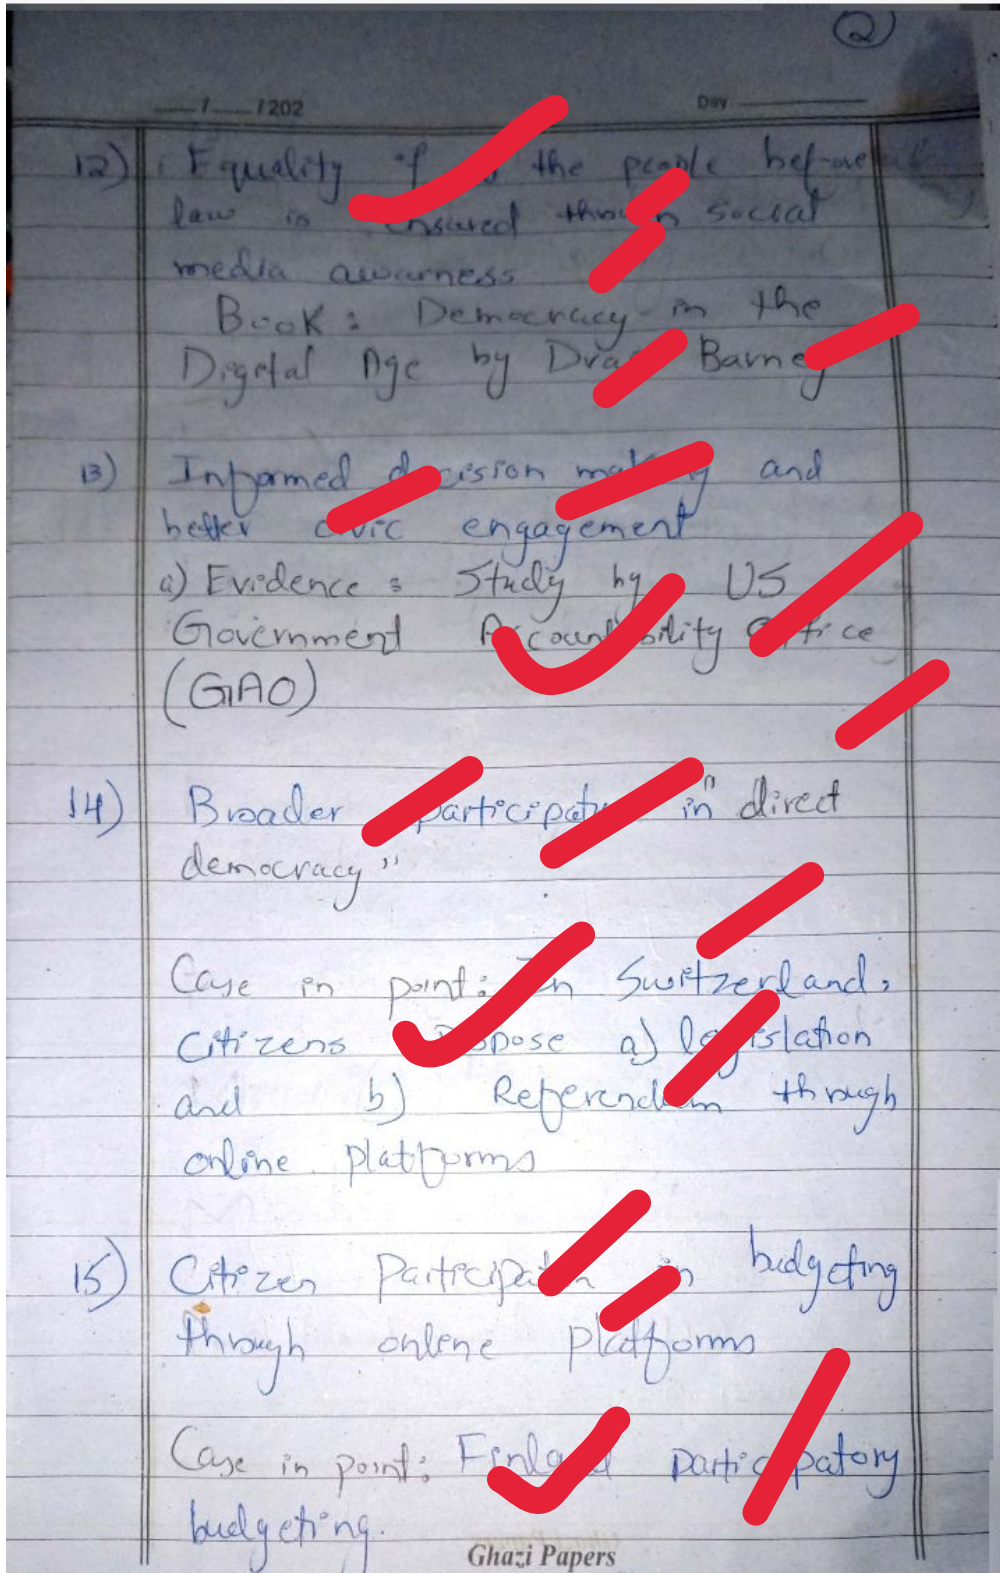 2
/ / 202 Day
12) Equality of the people before
law is ensured through social
media awarness
Book: Democracy in the
Digital Age by Barney
13) Informed decision making and
better civic engagement
a) Evidence: Study by US
Government Accountability Office
(GAO)
14) Broader participation in "direct
democracy"
Case in point: In Switzerland,
Citizens propose a) legislation
and b) Referendum through
online platforms
15) Citizen Participation in budgeting
through online platforms
Case in point: Finland participatory
budgeting.
Ghazi Papers